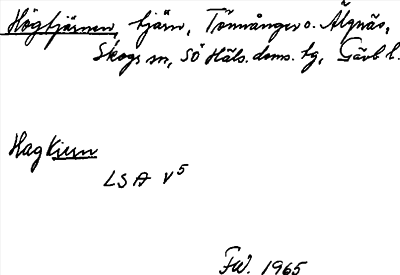 Högtjärnen, tjärn, Tönnånger o. Älgnäs,
Skogs sn, SÖ Häls. doms. tg, Gävl l.
Hag Kiern
LSA V5
FW. 1965